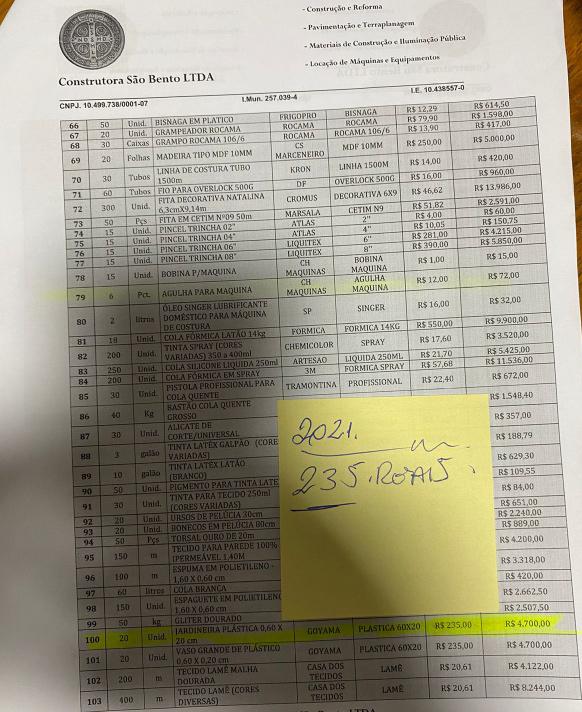 - Construção e Reforma
- Pavimentação e Terraplanagem
- Materiais de Construção e Iluminação Pública
- Locação de Máquinas e Equipamentos
Construtora São Bento LTDA
CNPJ. 10.499.738/0001-07 I.Mun. 257.039-4 I.E. 10.438557-0
66 50 Unid. BISNAGA EM PLATICO FRIGOPRO BISNAGA R$ 12,29 R$ 614,50
67 20 Unid. GRAMPEADOR ROCAMA ROCAMA ROCAMA R$ 79,90 R$ 1.598,00
68 30 Caixas GRAMPO ROCAMA 106/6 ROCAMA ROCAMA 106/6 R$ 13,90 R$ 417,00
69 20 Folhas MADEIRA TIPO MDF 10MM CS MARCENEIRO MDF 10MM R$ 250,00 R$ 5.000,00
70 30 Tubos LINHA DE COSTURA TUBO
1500m KRON LINHA 1500M R$ 14,00 R$ 420,00
71 60 Tubos FIO PARA OVERLOCK 500G DF OVERLOCK 500G R$ 16,00 R$ 960,00
72 300 Unid. FITA DECORATIVA NATALINA
6,3cmX9,14m CROMUS DECORATIVA 6X9 R$ 46,62 R$ 13.986,00
73 50 Pçs FITA EM CETIM Nº09 50m MARSALA CETIM N9 R$ 51,82 R$ 2.591,00
74 15 Unid. PINCEL TRINCHA 02" ATLAS 2" R$ 4,00 R$ 60,00
75 15 Unid. PINCEL TRINCHA 04" ATLAS 4" R$ 10,05 R$ 150,75
76 15 Unid. PINCEL TRINCHA 06" LIQUITEX 6" R$ 281,00 R$ 4.215,00
77 15 Unid. PINCEL TRINCHA 08" LIQUITEX 8" R$ 390,00 R$ 5.850,00
78 15 Unid. BOBINA P/MAQUINA CH MAQUINAS BOBINA MAQUINA R$ 1,00 R$ 15,00
79 6 Pct. AGULHA PARA MAQUINA CH MAQUINAS AGULHA MAQUINA R$ 12,00 R$ 72,00
80 2 litros ÓLEO SINGER LUBRIFICANTE
DOMÉSTICO PARA MÁQUINA
DE COSTURA SP SINGER R$ 16,00 R$ 32,00
81 18 Unid. COLA FÓRMICA LATÃO 14kg FORMICA FORMICA 14KG R$ 550,00 R$ 9.900,00
82 200 Unid. TINTA SPRAY (CORES
VARIADAS) 350 a 400ml CHEMICOLOR SPRAY R$ 17,60 R$ 3.520,00
83 250 Unid. COLA SILICONE LIQUIDA 250ml ARTESAO LIQUIDA 250ML R$ 21,70 R$ 5.425,00
84 200 Unid. COLA FÓRMICA EM SPRAY 3M FORMICA SPRAY R$ 57,68 R$ 11.536,00
85 30 Unid. PISTOLA PROFISSIONAL PARA
COLA QUENTE TRAMONTINA PROFISSIONAL R$ 22,40 R$ 672,00
86 40 Kg BASTÃO COLA QUENTE
GROSSO R$ 1.548,40
87 30 Unid. ALICATE DE
CORTE/UNIVERSAL R$ 357,00
88 3 galão TINTA LATÉX GALPÃO (CORE
VARIADAS) R$ 188,79
89 10 galão TINTA LATÉX LATÃO
(BRANCO) R$ 629,30
90 50 Unid. PIGMENTO PARA TINTA LATE R$ 109,55
91 30 Unid. TINTA PARA TECIDO 250ml
(CORES VARIADAS) R$ 84,00
92 20 Unid. URSOS DE PELÚCIA 30cm R$ 651,00
93 20 Unid. BONECOS EM PELÚCIA 80cm R$ 2.240,00
94 50 Pçs TORSAL OURO DE 20m R$ 889,00
95 150 m TECIDO PARA PAREDE 100%
IPERMEÁVEL 1.40M R$ 4.200,00
96 100 m ESPUMA EM POLIETILENO -
1,60 X 0,60 cm R$ 3.318,00
97 60 litros COLA BRANCA R$ 420,00
98 150 Unid. ESPAGUETE EM POLIETILENO
1,60 X 0,60 cm R$ 2.662,50
99 50 kg GLITER DOURADO R$ 2.507,50
100 20 Unid. JARDINEIRA PLÁSTICA 0,60 X
20 cm GOYAMA PLASTICA 60X20 R$ 235,00 R$ 4.700,00
101 20 Unid. VASO GRANDE DE PLÁSTICO
0,60 X 0,20 cm GOYAMA PLASTICA 60X20 R$ 235,00 R$ 4.700,00
102 200 m TECIDO LAMÊ MALHA
DOURADA CASA DOS TECIDOS LAMÊ R$ 20,61 R$ 4.122,00
103 400 m TECIDO LAMÊ (CORES
DIVERSAS) CASA DOS TECIDOS LAMÊ R$ 20,61 R$ 8.244,00
2021.
235 REAIS.